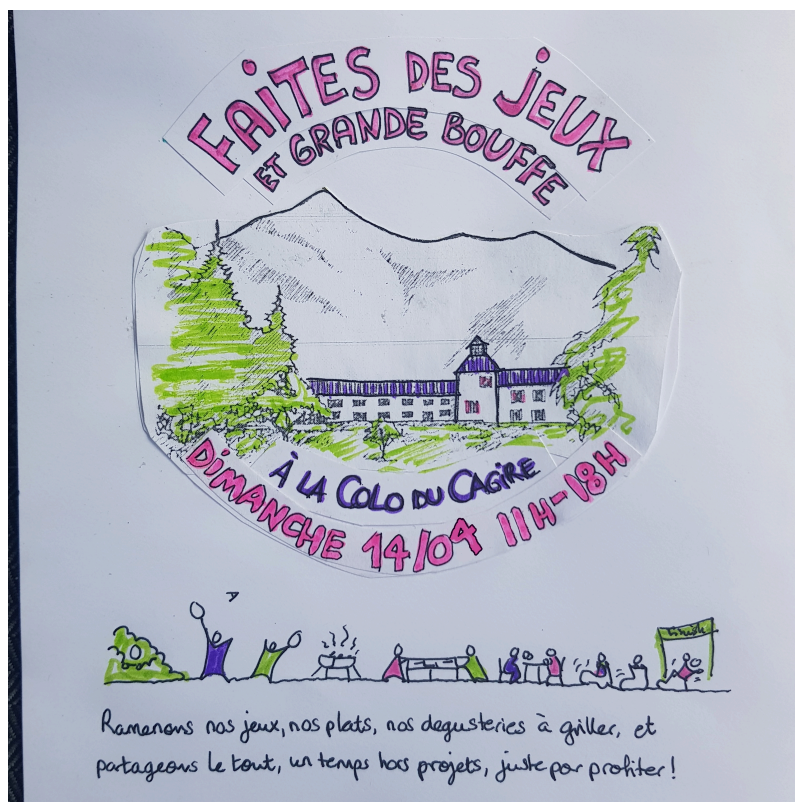 FAITES DES JEUX
ET GRANDE BOUFFE
À LA COLO DU CAGIRE
DIMANCHE 14/04 11H-18H
Finish
Ramenons nos jeux, nos plats, nos degusteries à griller, et
partageons le tout, un temps hors projets, juste por profiter!